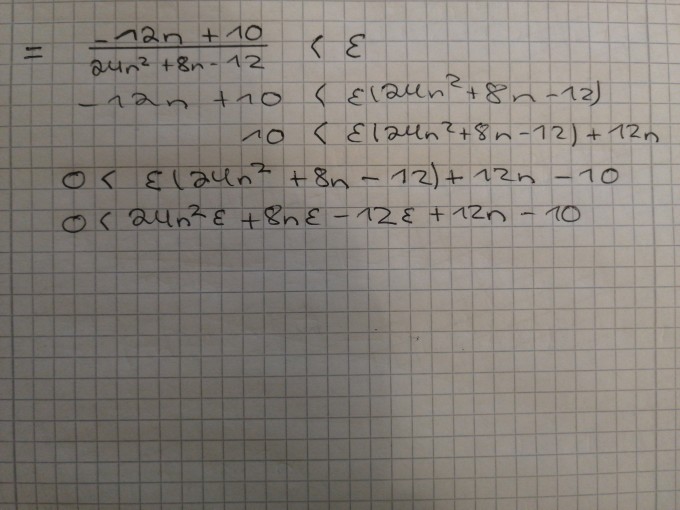 = (-12n + 10)/(24n² + 8n - 12) < ε
-12n + 10 < ε(24n² + 8n - 12)
10 < ε(24n² + 8n - 12) + 12n
0 < ε(24n² + 8n - 12) + 12n - 10
0 < 24n²ε + 8nε - 12ε + 12n - 10